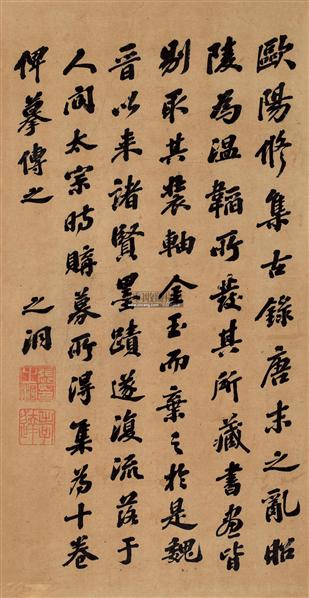 歐陽修集古錄唐末之亂昭
陵為溫韜所發其所藏書畫皆
剔取其裝軸金玉而棄之於是魏
晉以来諸賢墨蹟遂復流落于
人间太宗時購募所得集為十卷
俾摹傳之
之洞